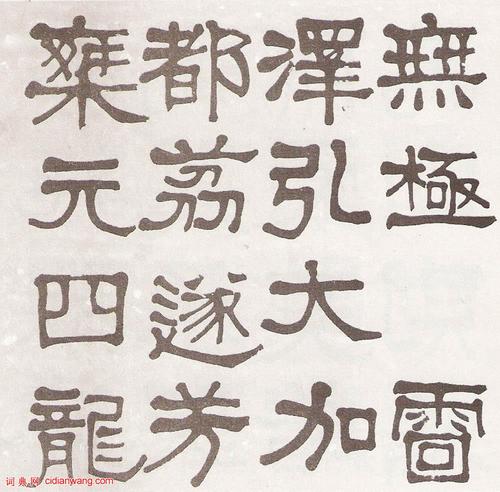 無極雷
澤引大加
都荔遂芳
椉元四龍
词典网 cidianwang.com